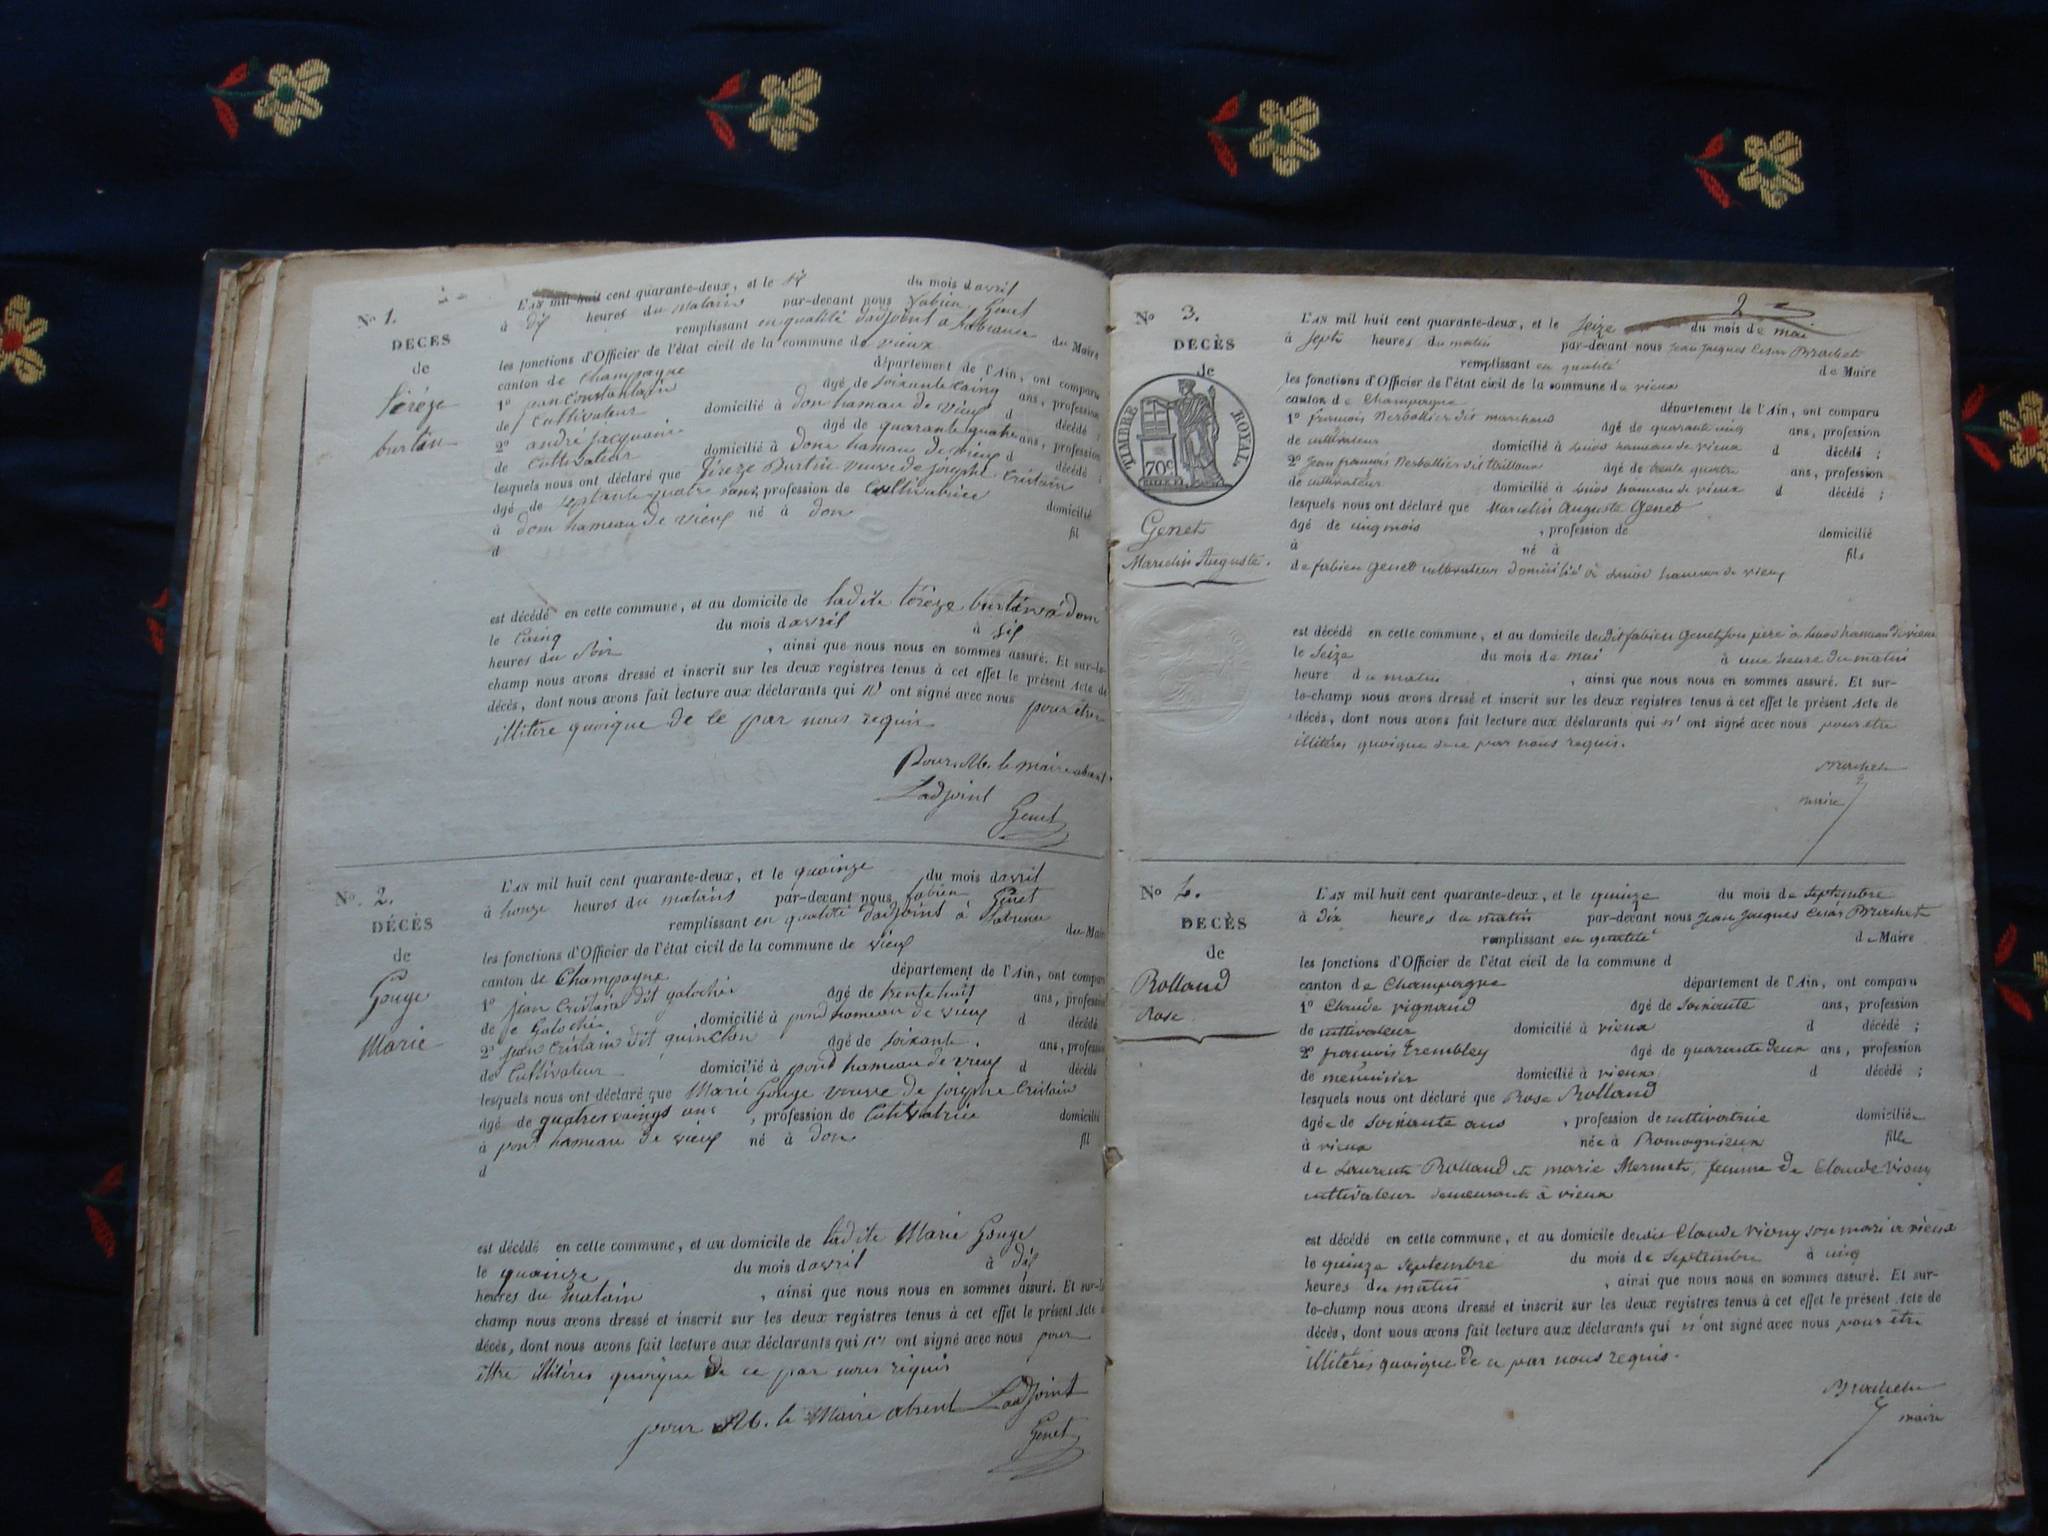 No 1.
DECÈS
de
térèze
burtin
L'AN mil huit cent quarante-deux, et le six du mois davril
à dix heures du matain par-devant nous fabien Genet
remplissant en qualité dadjoint a labsance du Maire
les fonctions d'Officier de l'état civil de la commune de vieux
canton de Champagne département de l'Ain, ont comparu
1o jean Constantain âgé de soixante cainq ans, profession
de Cultivateur domicilié à don hameau de vieux d décédé ;
2o andré jacquain âgé de quarante quatre ans, profession
de Cultivateur domicilié à don hameau de vieux d décédé ;
lesquels nous ont déclaré que térèze Burtin veuve de josephe Cristain
âgé de septante quatre ans, profession de Cultivatrice domicilié
à dom hameau de vieux né à don fil
d
est décédé en cette commune, et au domicile de ladite térèze burtin a don
le Cainq du mois davril à six
heures du soir , ainsi que nous nous en sommes assuré. Et sur-le-
champ nous avons dressé et inscrit sur les deux registres tenus à cet effet le présent Acte de
décès, dont nous avons fait lecture aux déclarants qui n' ont signé avec nous pour être
illitère quoique de ce par nous requis
Pour M. le maire absent
Ladjoint
Genet
No. 2.
DÉCÈS
de
Gouge
Marie
L'AN mil huit cent quarante-deux, et le quainze du mois davril
à honze heures du matains par-devant nous fabien Genet
remplissant en qualité dadjoint à labsence du Maire
les fonctions d'Officier de l'état civil de la commune de vieux
canton de Champagne département de l'Ain, ont comparu
1o jean Cristain dit galochér âgé de trente huit ans, profession
de galochér domicilié à pond hameau de vieux d décédé
2o jean Cristain dit quinclan âgé de soixante . ans, profession
de Cultivateur domicilié à pond hameau de vieux d décédé
lesquels nous ont déclaré que Marie Gouge veuve de josephe Cristain
âgé de quatres vaings ans , profession de Cultivatrice domicilié
à pont hameau de vieux né à don fil
d
est décédé en cette commune, et au domicile de ladite Marie Gouge
le quainze du mois davril à dix
heures du matain , ainsi que nous nous en sommes assuré. Et sur-le-
champ nous avons dressé et inscrit sur les deux registres tenus à cet effet le présent Acte
décès, dont nous avons fait lecture aux déclarants qui n' ont signé avec nous pour
ittre illitéres quoique de ce par nous riquis
pour M. le Maire absent Ladjoint
Genet
2
No 3.
DECÈS
de
TIMBRE ROYAL.
70c
Genet
Marcelin Auguste.
L'AN mil huit cent quarante-deux, et le seize du mois de mai
à sept heures du matin par-devant nous Jean Jacques César Brachet
remplissant en qualité de Maire
les fonctions d'Officier de l'état civil de la commune de vieux
canton de Champagne département de l'Ain, ont comparu
1o françois Nerbollier dit marchand âgé de quarante cinq ans, profession
de cultivateur domicilié à hameau de vieux d décédé ;
2o Jean françois Nerbollier dit âgé de trente quatre ans, profession
de cultivateur domicilié à hameau de vieux d décédé ;
lesquels nous ont déclaré que Marcelin Auguste Genet
âgé de cinq mois , profession de domicilié
à né à fils
de fabien Genet cultivateur domicilié à hameau de vieux
est décédé en cette commune, et au domicile dudit fabien Genet son père à hameau de vieux
le seize du mois de mai à une heure du matin
heure du matin , ainsi que nous nous en sommes assuré. Et sur-
le-champ nous avons dressé et inscrit sur les deux registres tenus à cet effet le présent Acte de
décès, dont nous avons fait lecture aux déclarants qui n' ont signé avec nous pour etre
illitéres quoique de ce par nous requis.
Brachet
maire
No 4.
DECÈS
de
Rolland
Rose
L'AN mil huit cent quarante-deux, et le quinze du mois de septembre
à dix heures du matin par-devant nous Jean Jacques César Brachet
remplissant en qualité de Maire
les fonctions d'Officier de l'état civil de la commune d
canton de Champagne département de l'Ain, ont comparu
1o Claude vignand âgé de soixante ans, profession
de cultivateur domicilié à vieux d décédé ;
2o françois Trembley âgé de quarante deux ans, profession
de meunier domicilié à vieux d décédé ;
lesquels nous ont déclaré que Rose Rolland
âgée de soixante ans , profession de cultivatrice domiciliée
à vieux née à Romagnieux fille
de Laurent Rolland et marie Mermet, femme de Claude Viony
cultivateur demeurant à vieux
est décédé en cette commune, et au domicile dudit Claude Viony son mari à vieux
le quinze septembre du mois de septembre à cinq
heures du matin , ainsi que nous nous en sommes assuré. Et sur-
le-champ nous avons dressé et inscrit sur les deux registres tenus à cet effet le présent Acte de
décès, dont nous avons fait lecture aux déclarants qui n' ont signé avec nous pour être
illitérés quoique de ce par nous requis.
Brachet
maire